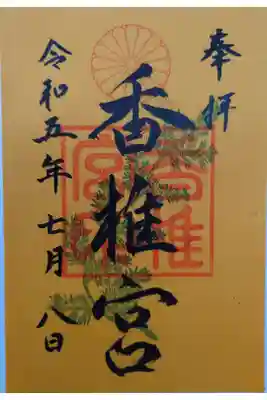 奉拝
香椎宮
令和五年七月八日
香椎
宮